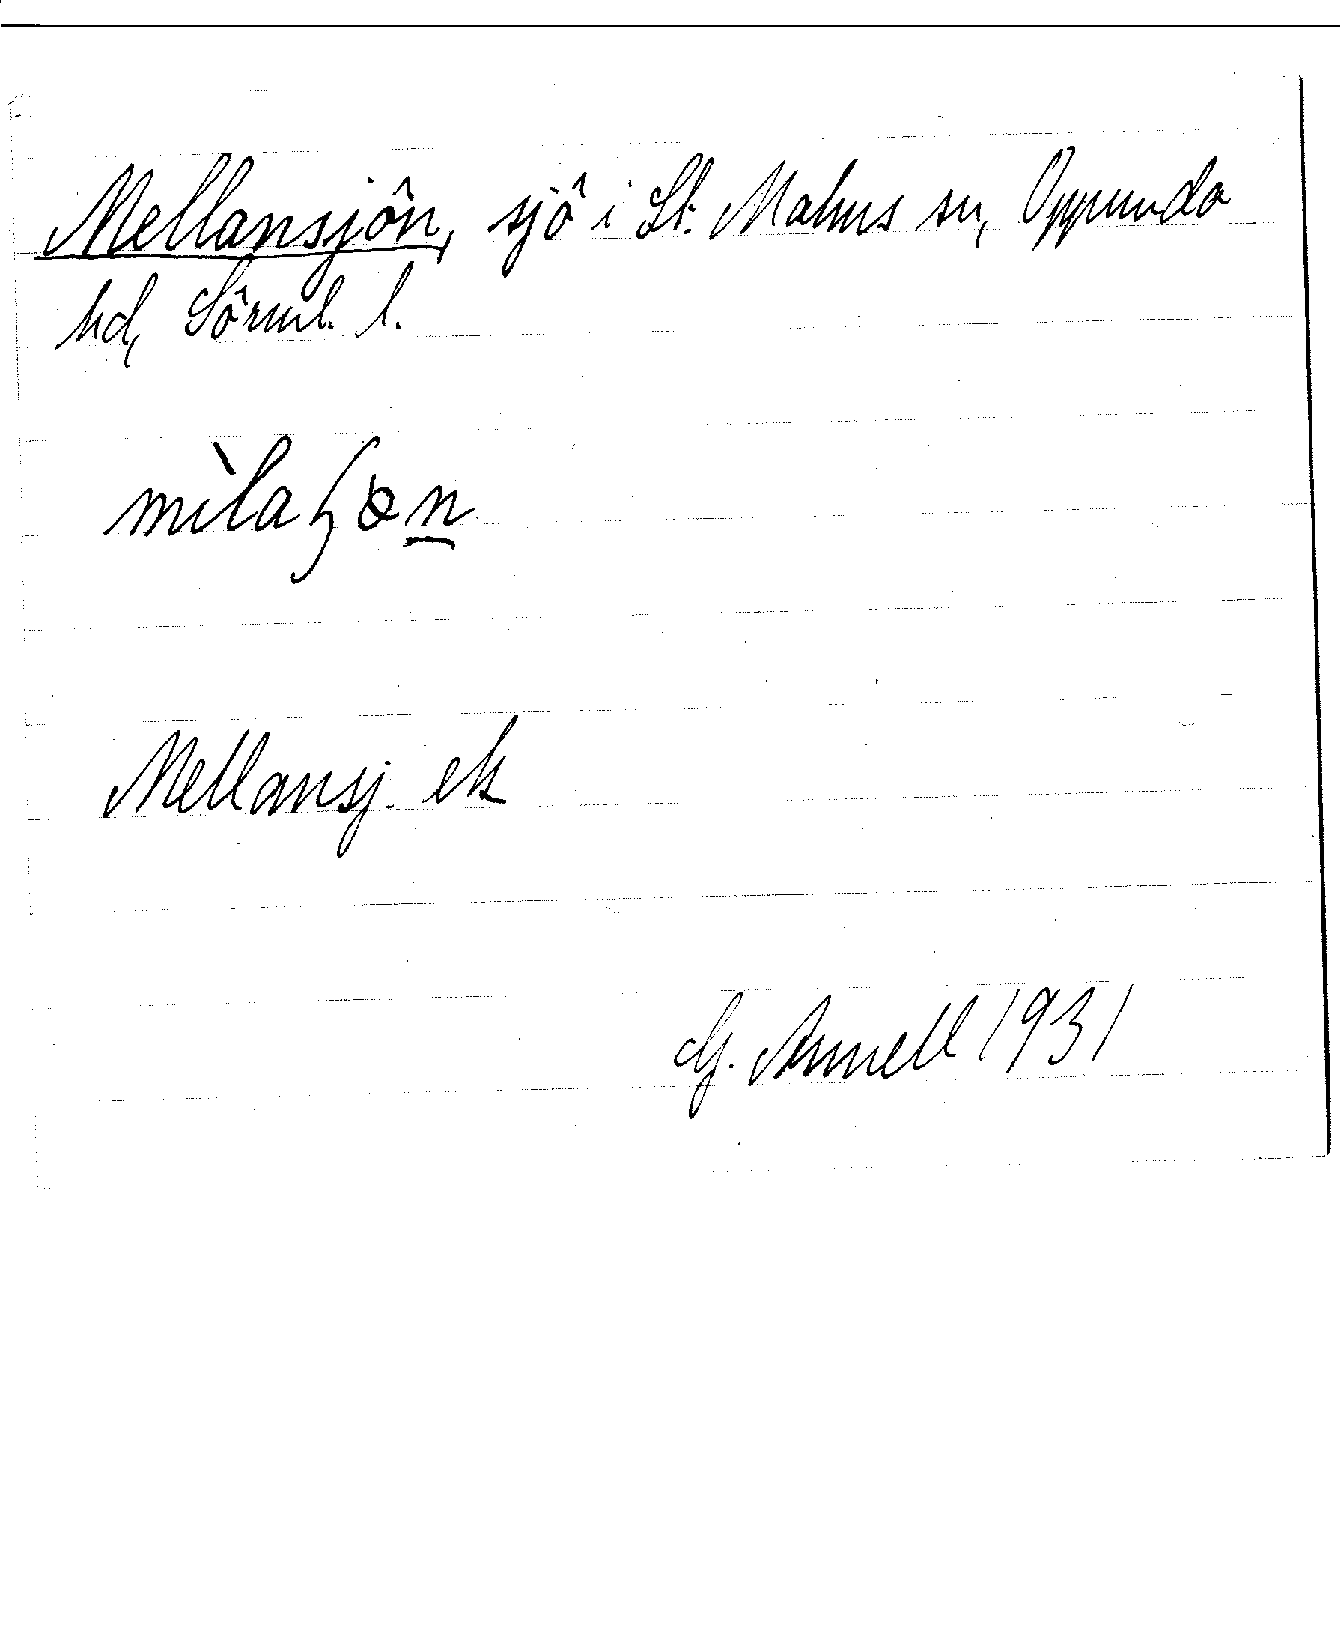 Mellansjön, sjö i St. Malms sn, Oppunda
hd, Sörml. l.
mìlaʃɵn
Mellansj. ek
G. Annell 1931